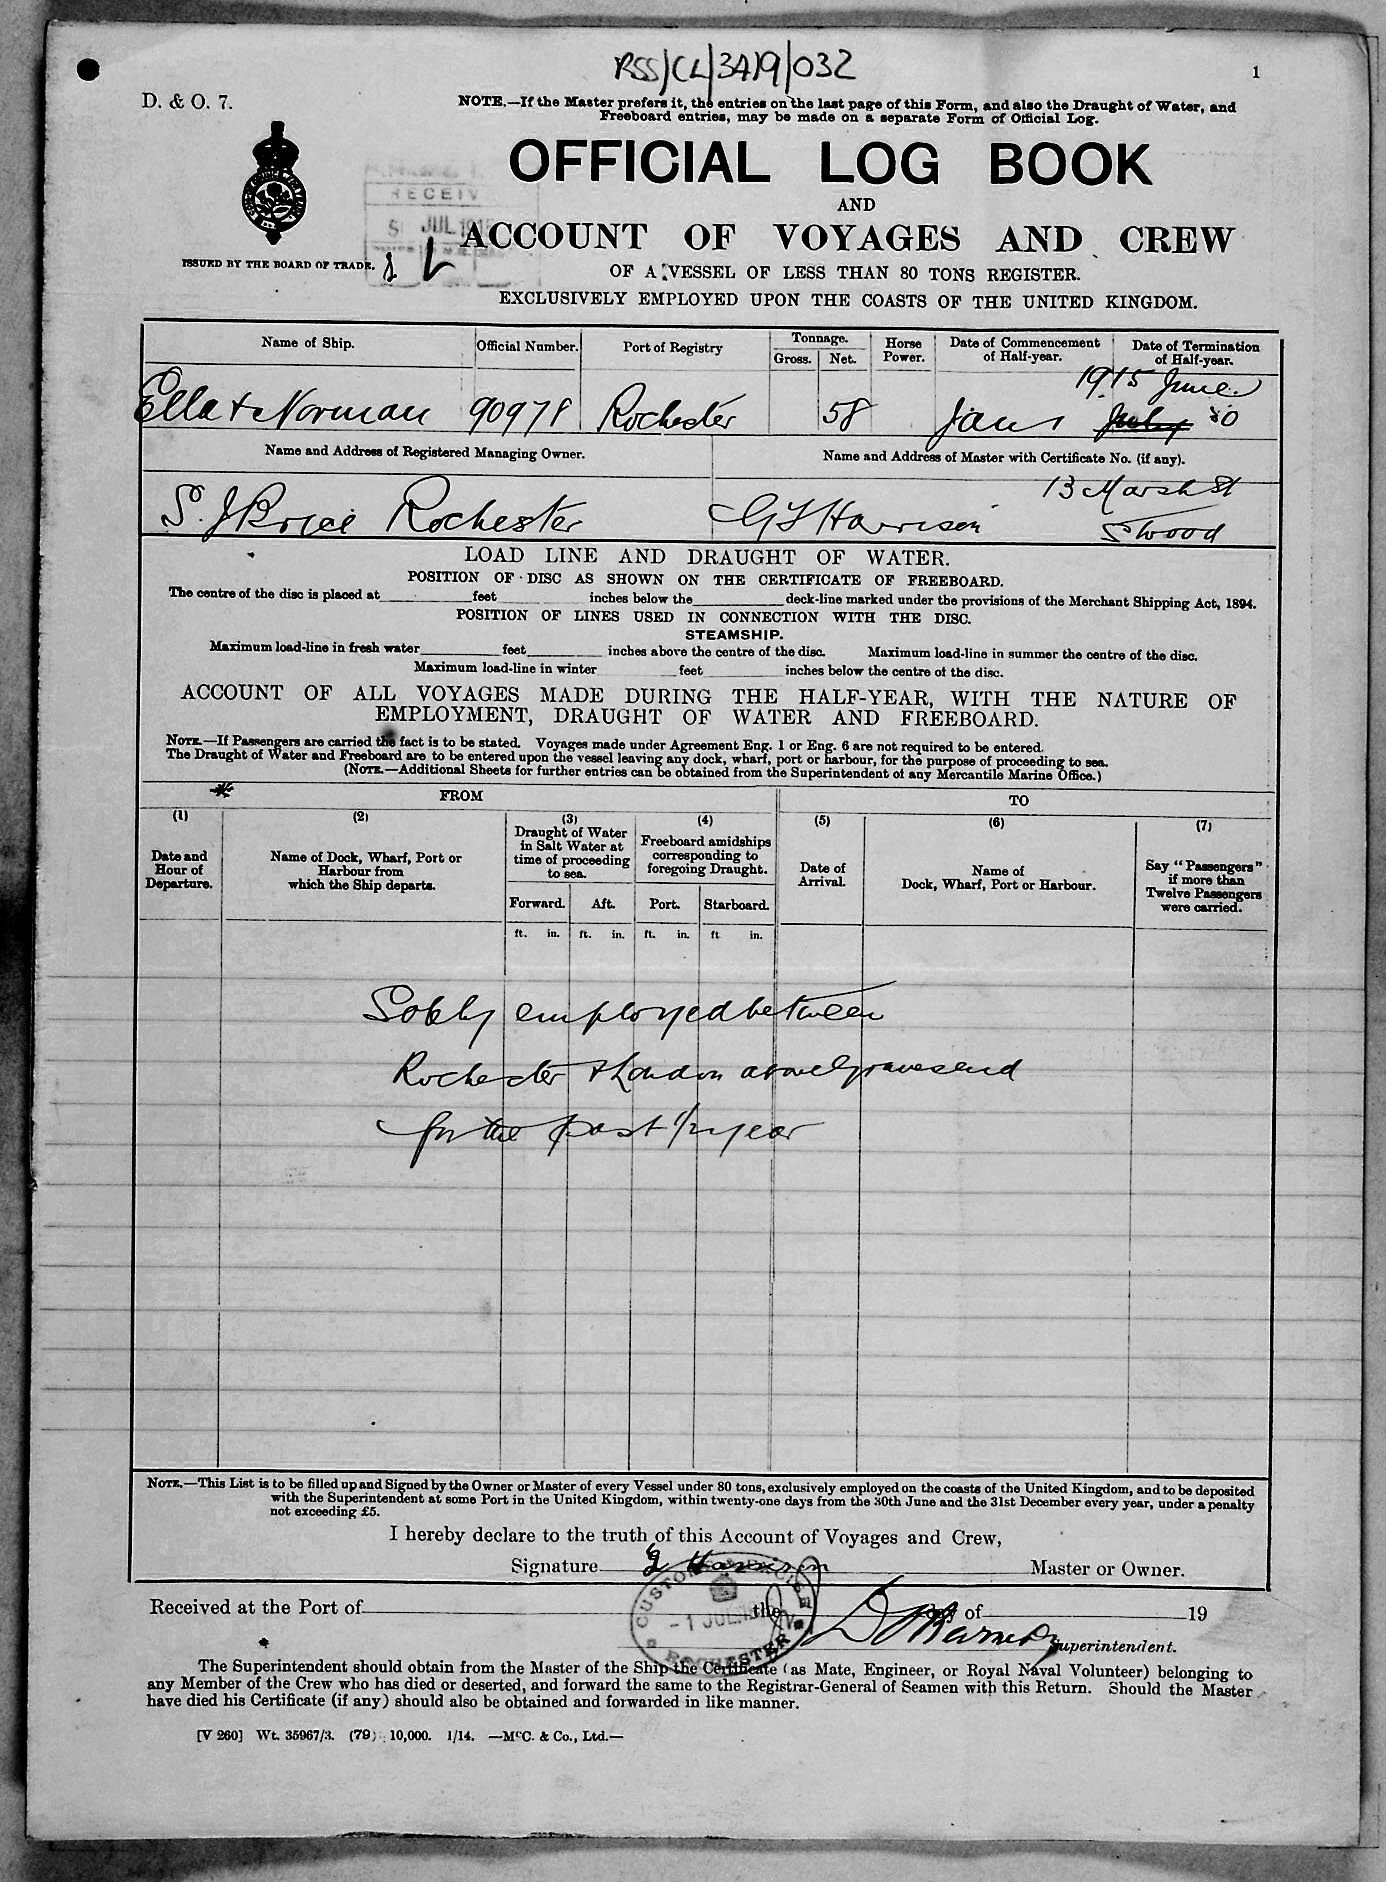 RSS/CL/3419/032
1
D. & O. 7.
NOTE.—If the Master prefers it, the entries on the last page of this Form, and also the Draught of Water, and
Freeboard entries, may be made on a separate Form of Official Log.
OFFICIAL LOG BOOK
AND
ACCOUNT OF VOYAGES AND CREW
ISSUED BY THE BOARD OF TRADE.
OF A VESSEL OF LESS THAN 80 TONS REGISTER.
EXCLUSIVELY EMPLOYED UPON THE COASTS OF THE UNITED KINGDOM.
RECEIV
JUL 191
Name of Ship. Official Number. Port of Registry Tonnage. Gross. Net. Horse Power. Date of Commencement of Half-year. Date of Termination of Half-year.
1915 June
Ella & Norman 90978 Rochester 58 Jan 1 July 30
Name and Address of Registered Managing Owner. Name and Address of Master with Certificate No. (if any).
13 Marsh St
S. J Brice Rochester G Harrison Stwood
LOAD LINE AND DRAUGHT OF WATER.
POSITION OF DISC AS SHOWN ON THE CERTIFICATE OF FREEBOARD.
The centre of the disc is placed at feet inches below the deck-line marked under the provisions of the Merchant Shipping Act, 1894.
POSITION OF LINES USED IN CONNECTION WITH THE DISC.
STEAMSHIP.
Maximum load-line in fresh water feet inches above the centre of the disc. Maximum load-line in summer the centre of the disc.
Maximum load-line in winter feet inches below the centre of the disc.
ACCOUNT OF ALL VOYAGES MADE DURING THE HALF-YEAR, WITH THE NATURE OF
EMPLOYMENT, DRAUGHT OF WATER AND FREEBOARD.
NOTE.—If Passengers are carried the fact is to be stated. Voyages made under Agreement Eng. 1 or Eng. 6 are not required to be entered.
The Draught of Water and Freeboard are to be entered upon the vessel leaving any dock, wharf, port or harbour, for the purpose of proceeding to sea.
(NOTE.—Additional Sheets for further entries can be obtained from the Superintendent of any Mercantile Marine Office.)
FROM TO
(1) (2) (3) (4) (5) (6) (7)
Date and Hour of Departure.
Name of Dock, Wharf, Port or Harbour from which the Ship departs.
Draught of Water in Salt Water at time of proceeding to sea.
Freeboard amidships corresponding to foregoing Draught.
Date of Arrival.
Name of Dock, Wharf, Port or Harbour.
Say "Passengers" if more than Twelve Passengers were carried.
Forward. Aft. Port. Starboard.
ft. in. ft. in. ft. in. ft in.
Solely employed between
Rochester & London above Gravesend
for the past 1/2 year
NOTE.—This List is to be filled up and Signed by the Owner or Master of every Vessel under 80 tons, exclusively employed on the coasts of the United Kingdom, and to be deposited
with the Superintendent at some Port in the United Kingdom, within twenty-one days from the 30th June and the 31st December every year, under a penalty
not exceeding £5.
I hereby declare to the truth of this Account of Voyages and Crew,
Signature G Harrison Master or Owner.
CUSTOMS & EXCISE
-1 JUL
ROCHESTER
Received at the Port of the day of 19
Superintendent.
The Superintendent should obtain from the Master of the Ship the Certificate (as Mate, Engineer, or Royal Naval Volunteer) belonging to
any Member of the Crew who has died or deserted, and forward the same to the Registrar-General of Seamen with this Return. Should the Master
have died his Certificate (if any) should also be obtained and forwarded in like manner.
[V 260] Wt. 35967/3. (79) 10,000. 1/14. —McC. & Co., Ltd.—